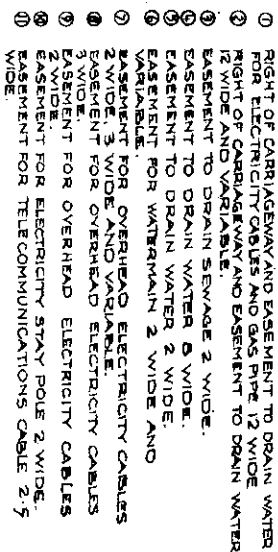 ① RIGHT OF CARRIAGEWAY AND EASEMENT TO DRAIN WATER
FOR ELECTRICITY CABLES AND GAS PIPE 12 WIDE
② RIGHT OF CARRIAGEWAY AND EASEMENT TO DRAIN WATER
12 WIDE AND VARIABLE.
③ EASEMENT TO DRAIN SEWAGE 2 WIDE.
④ EASEMENT TO DRAIN WATER 8 WIDE.
⑤ EASEMENT TO DRAIN WATER 2 WIDE.
⑥ EASEMENT FOR WATERMAIN 2 WIDE AND
VARIABLE.
⑦ EASEMENT FOR OVERHEAD ELECTRICITY CABLES
2 WIDE, 3 WIDE AND VARIABLE.
⑧ EASEMENT FOR OVERHEAD ELECTRICITY CABLES
3 WIDE.
⑨ EASEMENT FOR OVERHEAD ELECTRICITY CABLES
2 WIDE.
⑩ EASEMENT FOR ELECTRICITY STAY POLE 2 WIDE.
⑪ EASEMENT FOR TELECOMMUNICATIONS CABLE 2.5
WIDE.